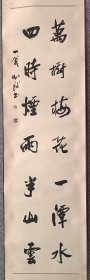 萬樹梅花一潭水
四時煙雨半山雲